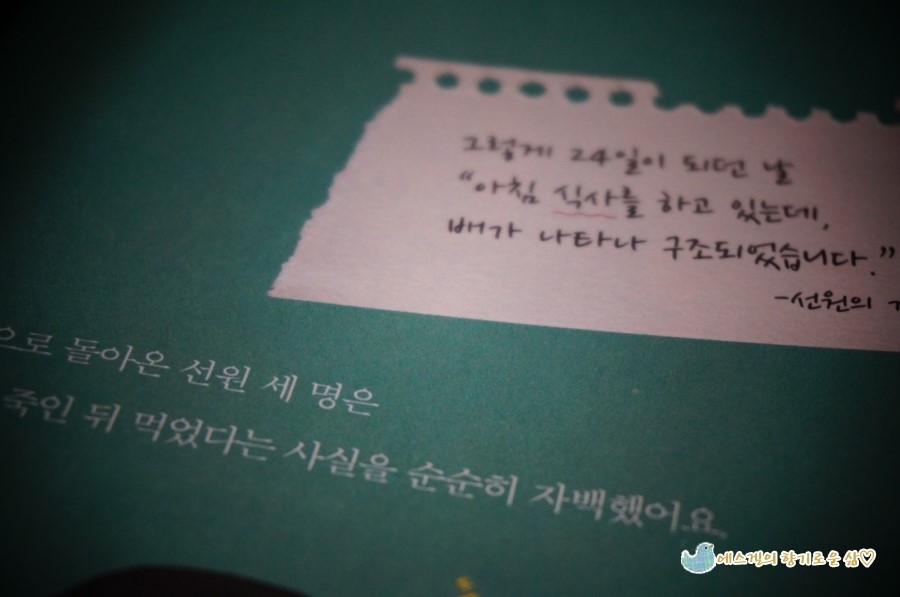 그렇게 24일이 되던 날
“아침 식사를 하고 있는데,
배가 나타나 구조되었습니다.”
-선원의
으로 돌아온 선원 세 명은
죽인 뒤 먹었다는 사실을 순순히 자백했어요.
에스겟의 향기로운 삶♡